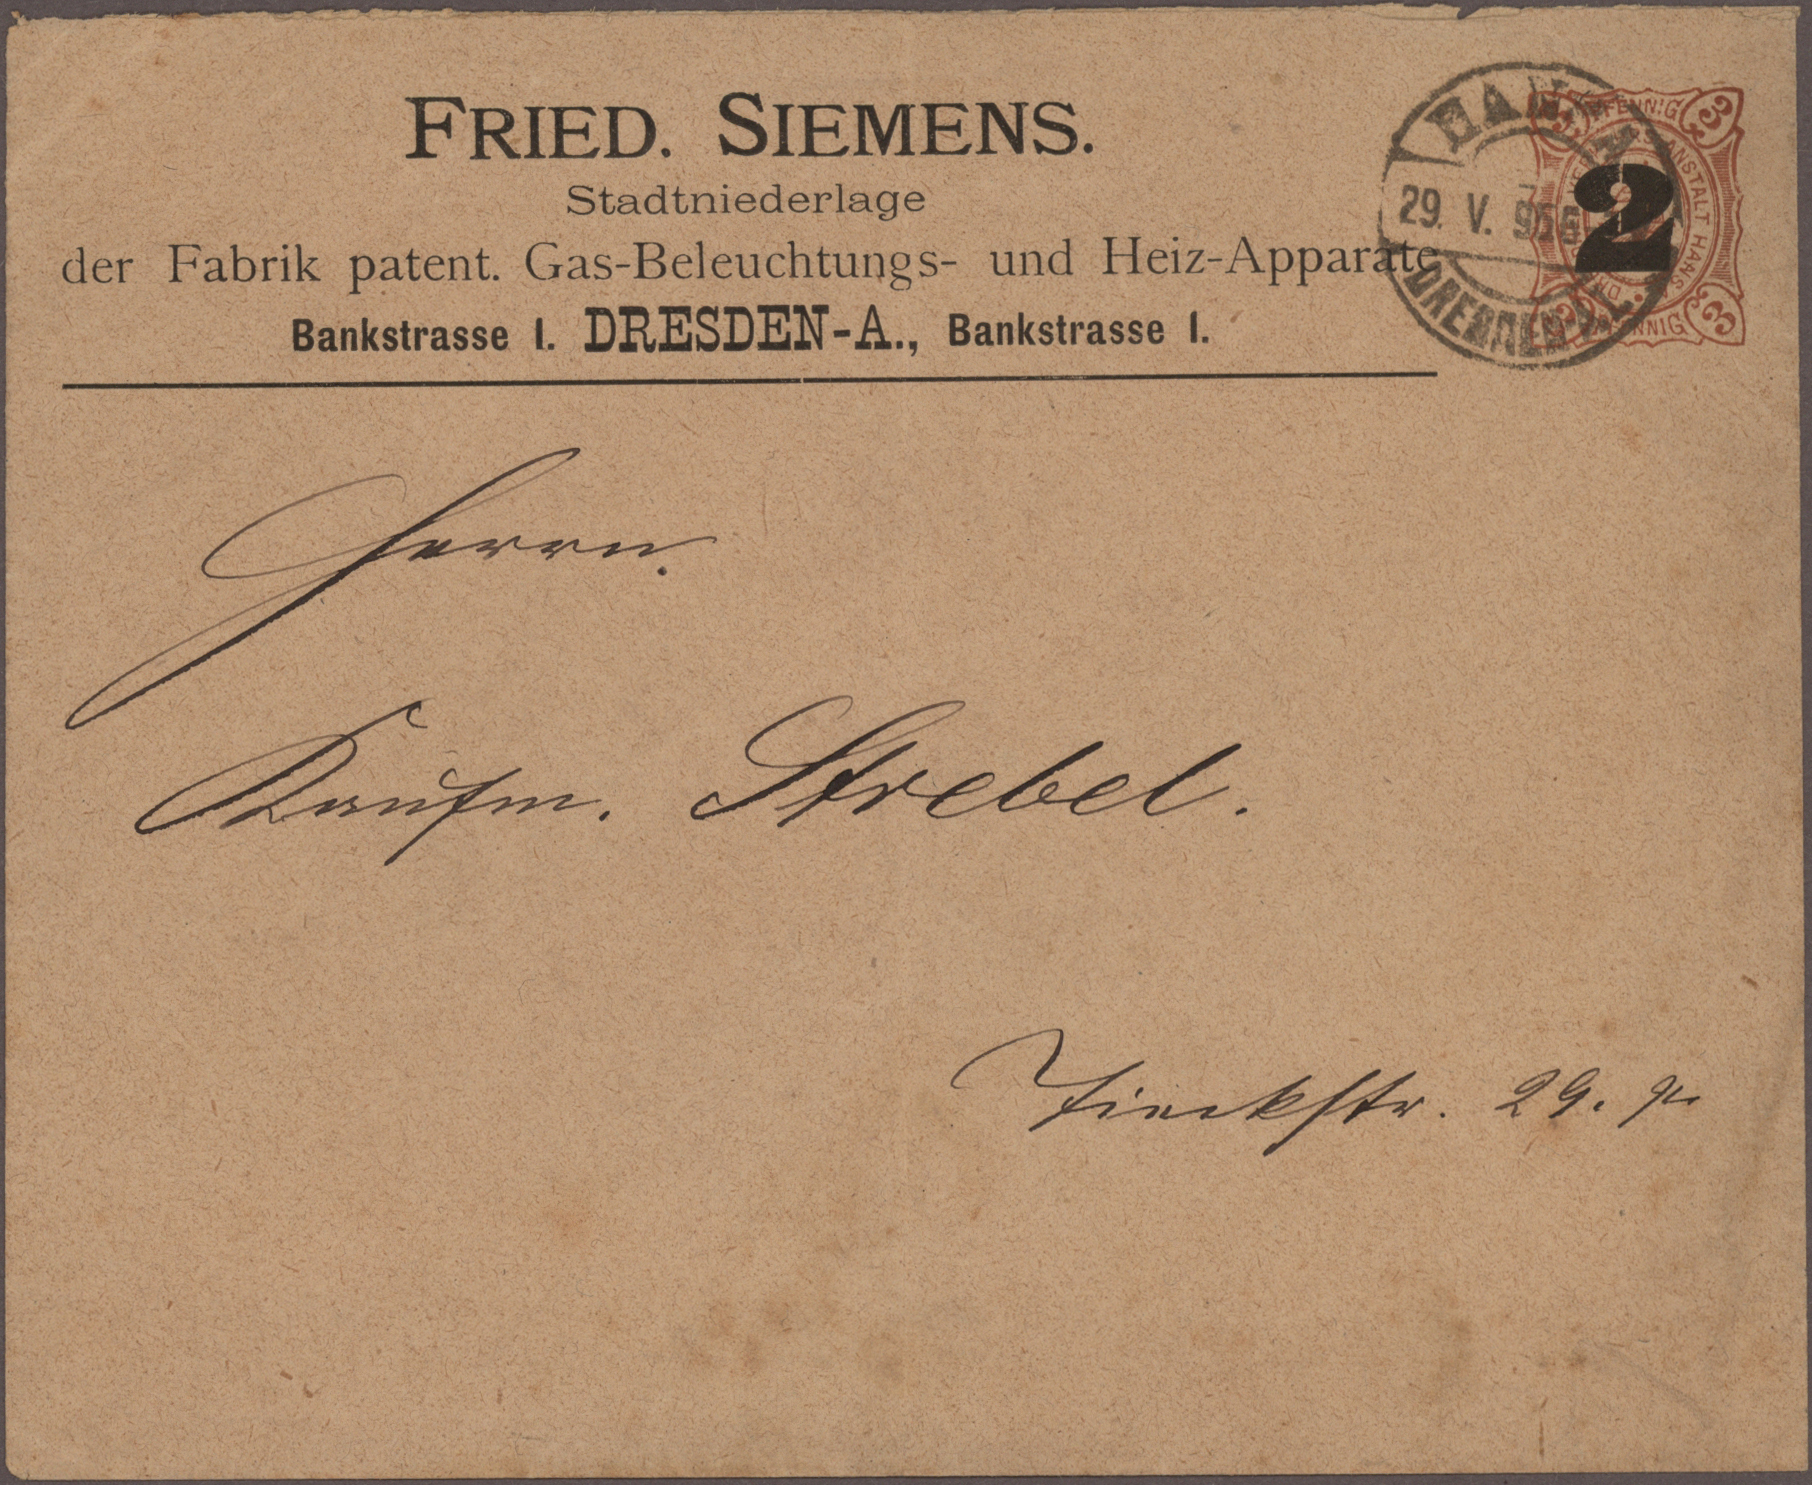 FRIED. SIEMENS.
Stadtniederlage
der Fabrik patent. Gas-Beleuchtungs- und Heiz-Apparate
Bankstrasse 1. DRESDEN-A., Bankstrasse 1.
HANSA
29. V. 95
DRESDEN-A.
PFENNIG
3 3
ANSTALT HANSA
2
3 3
PFENNIG
Herrn
Kaufm. Strebel.
Tieckstr. 29. p.